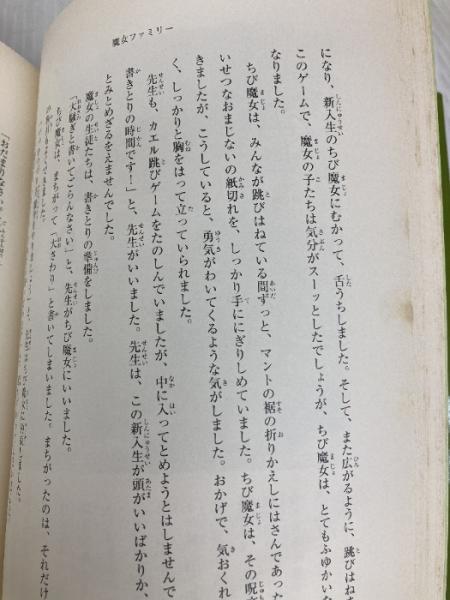 魔女ファミリー
になり、新入生のちび魔女にむかって、舌うちしました。そして、また広がるように、跳びはね
このゲームで、魔女の子たちは気分がスーッとしたでしょうが、ちび魔女は、とてもふゆかいな
なりました。
ちび魔女は、みんなが跳びはねている間ずっと、マントの裾の折りかえしにはさんであった
いせつなおまじないの紙切れを、しっかり手ににぎりしめていました。ちび魔女は、その呪
きましたが、こうしていると、勇気がわいてくるような気がしました。おかげで、気おくれ
く、しっかりと胸をはって立っていられました。
先生も、カエル跳びゲームをたのしんでいましたが、中に入ってとめようとはしませんで
書きとりの時間です！」と、先生がいいました。先生は、この新入生が頭がいいばかりか、
とみとめざるをえませんでした。
魔女の生徒たちは、書きとりの準備をしました。
「大騒ぎと書いてごらんなさい」と、先生がちび魔女にいいました。
ちび魔女は、まちがって「大さわり」と書いてしまいました。まちがったのは、それだけ
「おだまりなさい